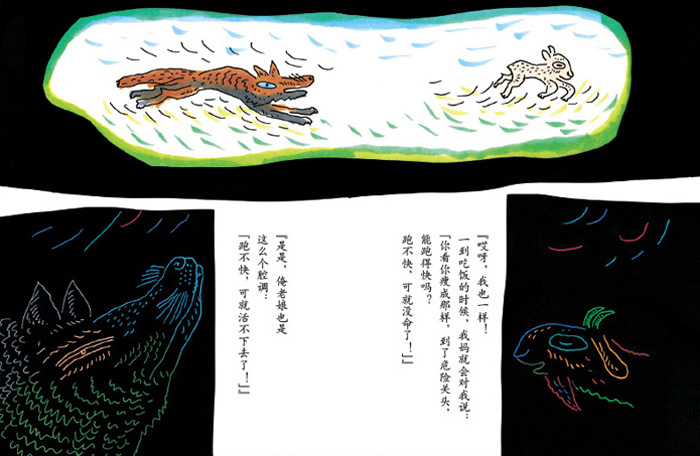 『哎呀，我也一样！
一到吃饭的时候，我妈就会对我说：
「你看你瘦成那样，到了危险关头，
能跑得快吗？
跑不快，可就没命了！」』
『是是，俺老娘也是
这么个腔调：
「跑不快，可就活不下去了！」』